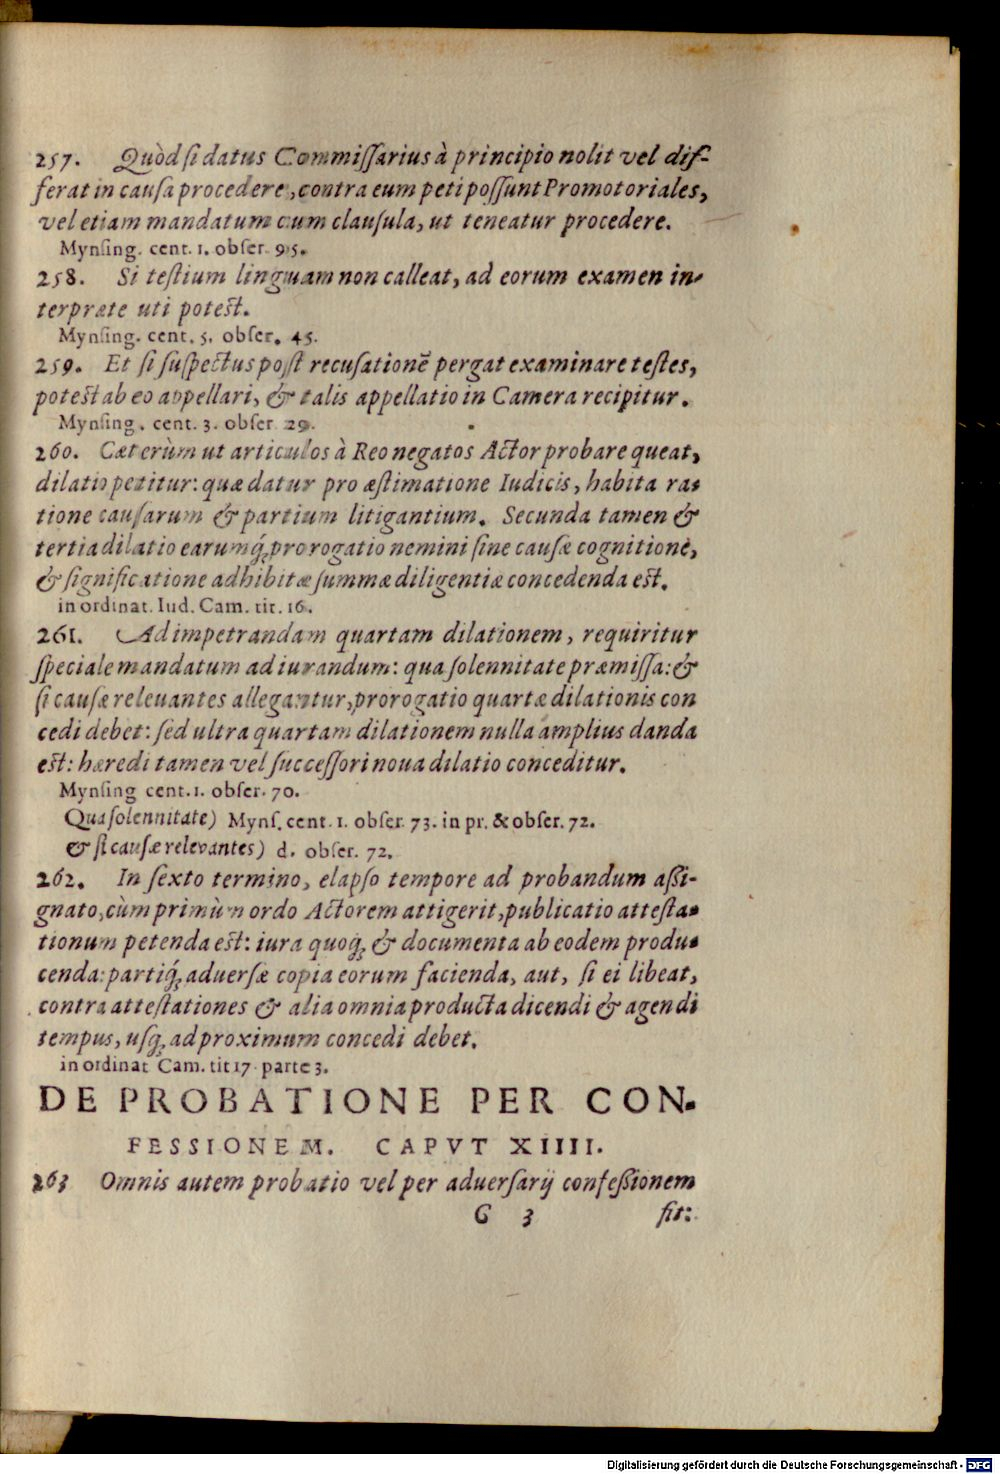 257. Quòd ſi datus Commiſſarius à principio nolit vel dif-
ferat in cauſa procedere, contra eum peti poſſunt Promotoriales,
vel etiam mandatum cum clauſula, ut teneatur procedere.
Mynſing. cent. 1. obſer. 95.
258. Si teſtium linguam non calleat, ad eorum examen in-
terprœte uti poteſt.
Mynſing. cent. 5. obſer. 45.
259. Et ſi ſuſpectus poſt recuſationē pergat examinare teſtes,
poteſt ab eo appellari, & talis appellatio in Camera recipitur.
Mynſing. cent. 3. obſer 29.
260. Cæterùm ut articulos à Reo negatos Actor probare queat,
dilatio petitur: quæ datur pro æſtimatione Iudicis, habita ra-
tione cauſarum & partium litigantium. Secunda tamen &
tertia dilatio earumq́; prorogatio nemini ſine cauſæ cognitione,
& ſignificatione adhibitæ ſummæ diligentiæ concedenda eſt.
in ordinat. Iud. Cam. tit. 16.
261. Ad impetrandam quartam dilationem, requiritur
ſpeciale mandatum ad iurandum: qua ſolennitate præmiſſa: &
ſi cauſæ releuantes allegantur, prorogatio quartæ dilationis con
cedi debet: ſed ultra quartam dilationem nulla amplius danda
eſt: hæredi tamen vel ſucceſſori noua dilatio conceditur.
Mynſing cent. 1. obſer. 70.
Qua ſolennitate) Mynſ. cent. 1. obſer. 73. in pr. & obſer. 72.
& ſi cauſæ relevantes) d. obſer. 72.
262. In ſexto termino, elapſo tempore ad probandum aßi-
gnato, cùm primùm ordo Actorem attigerit, publicatio atteſta-
tionum petenda eſt: iura quoq́; & documenta ab eodem produ-
cenda: partiq́; aduerſæ copia eorum facienda, aut, ſi ei libeat,
contra atteſtationes & alia omnia producta dicendi & agendi
tempus, uſq́; ad proximum concedi debet.
in ordinat Cam. tit 17. parte 3.
DE PROBATIONE PER CON-
FESSIONEM. CAPVT XIIII.
263 Omnis autem probatio vel per aduerſarij confeßionem
G 3 ſit:
Digitalisierung gefördert durch die Deutsche Forschungsgemeinschaft - DFG